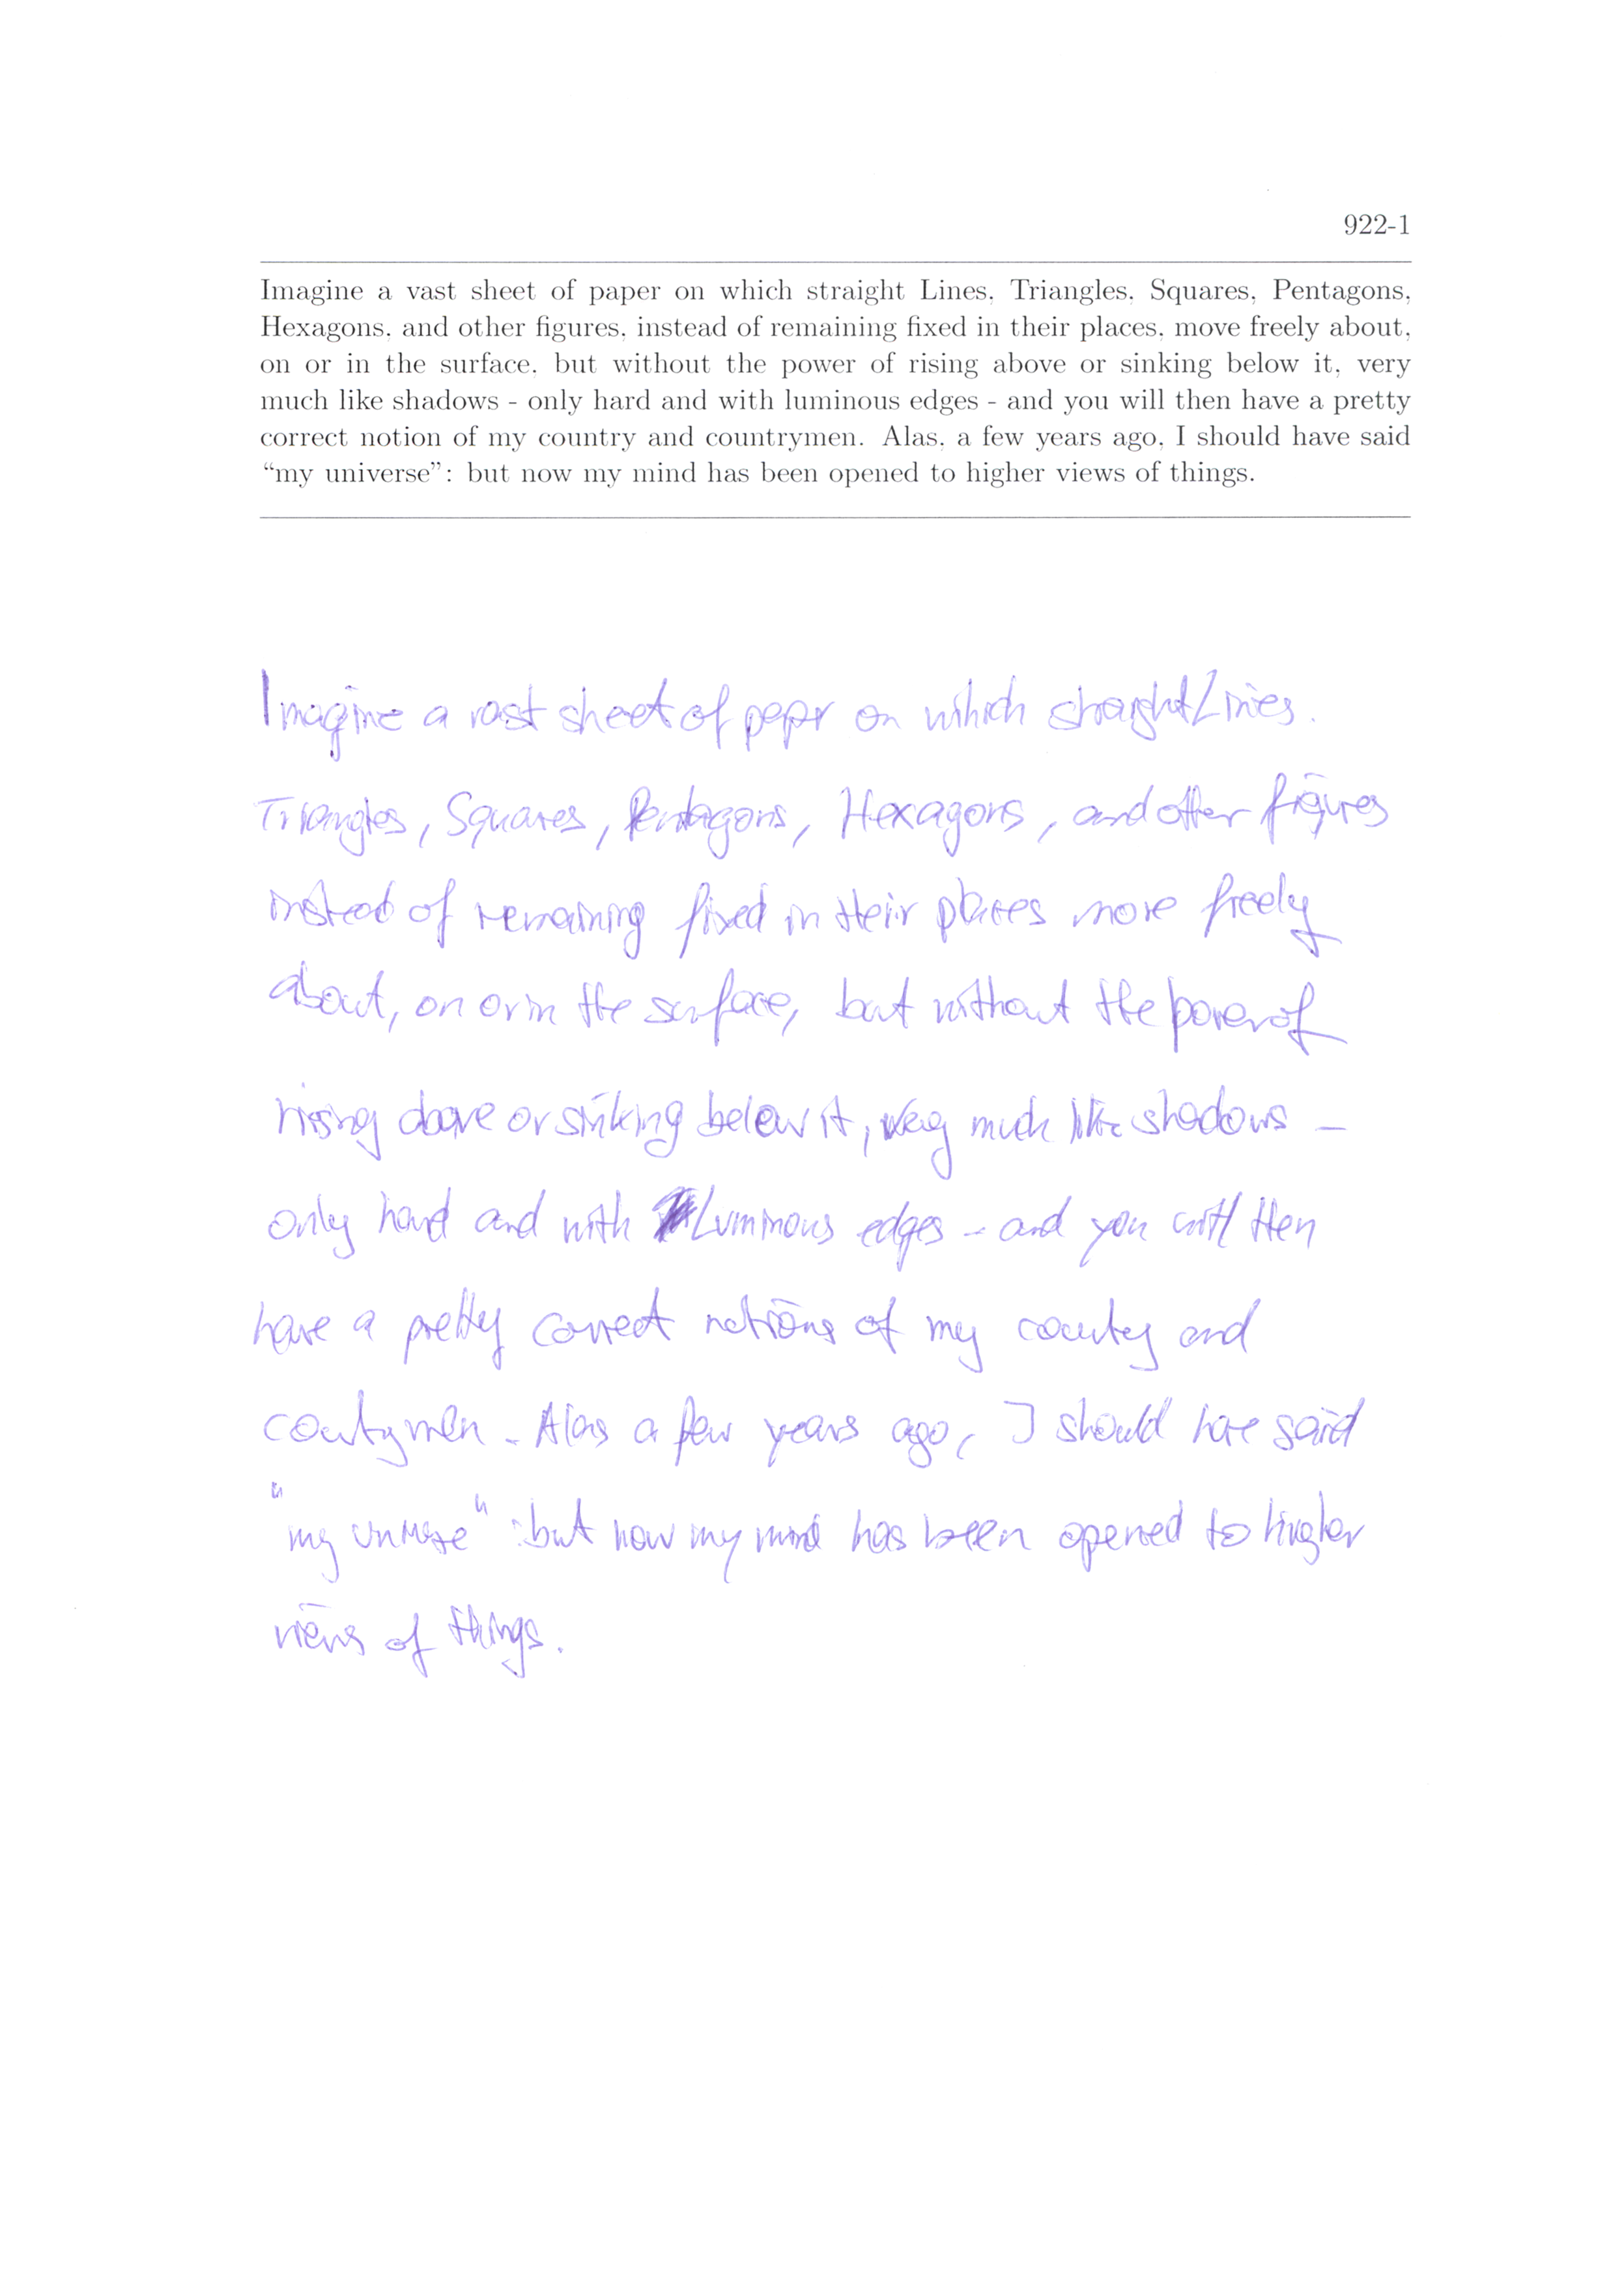 922-1
Imagine a vast sheet of paper on which straight Lines, Triangles, Squares, Pentagons,
Hexagons, and other figures, instead of remaining fixed in their places, move freely about,
on or in the surface, but without the power of rising above or sinking below it, very
much like shadows - only hard and with luminous edges - and you will then have a pretty
correct notion of my country and countrymen. Alas, a few years ago, I should have said
“my universe”: but now my mind has been opened to higher views of things.
Imagine a vast sheet of papr on which straight Lines.
Triangles, Squares, Pentagons, Hexagons, and other figures
instead of remaining fixed in their places move freely
about, on or in the surface, but without the power of
rising above or sinking below it, very much like shadows -
only hard and with Luminous edges - and you will then
have a pretty correct notions of my country and
countymen. Alas a few years ago, I should have said
"my universe" : but now my mind has been opened to higher
views of things.